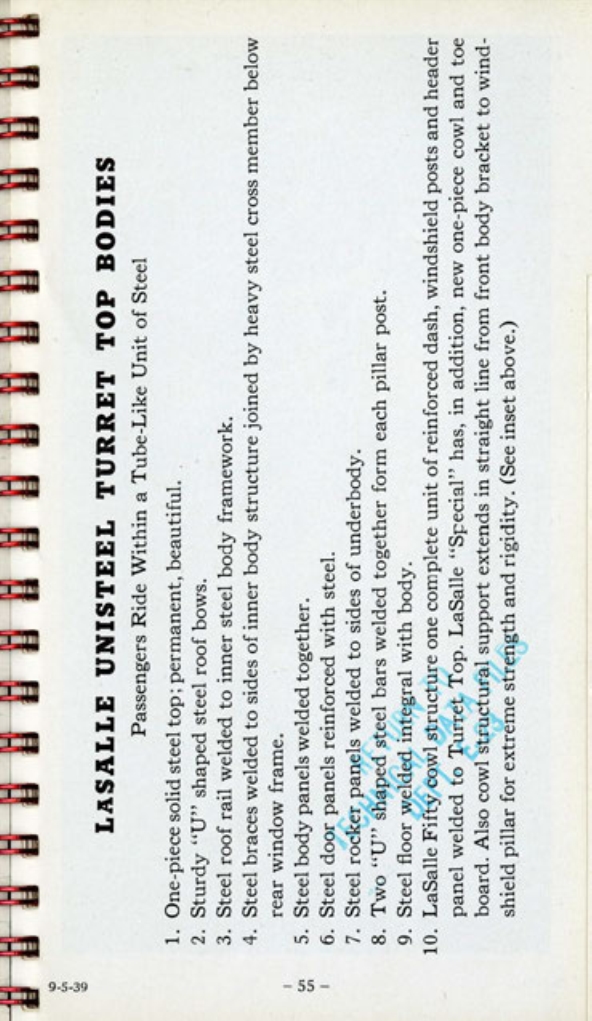 LASALLE UNISTEEL TURRET TOP BODIES
Passengers Ride Within a Tube-Like Unit of Steel
1. One-piece solid steel top; permanent, beautiful.
2. Sturdy “U” shaped steel roof bows.
3. Steel roof rail welded to inner steel body framework.
4. Steel braces welded to sides of inner body structure joined by heavy steel cross member below
rear window frame.
5. Steel body panels welded together.
6. Steel door panels reinforced with steel.
7. Steel rocker panels welded to sides of underbody.
8. Two “U” shaped steel bars welded together form each pillar post.
9. Steel floor welded integral with body.
10. LaSalle Fifty cowl structure one complete unit of reinforced dash, windshield posts and header
panel welded to Turret Top. LaSalle “Special” has, in addition, new one-piece cowl and toe
board. Also cowl structural support extends in straight line from front body bracket to wind-
shield pillar for extreme strength and rigidity. (See inset above.)
RETURN TO
TECHNICAL DATA FILES
DEPT.
9-5-39
– 55 –